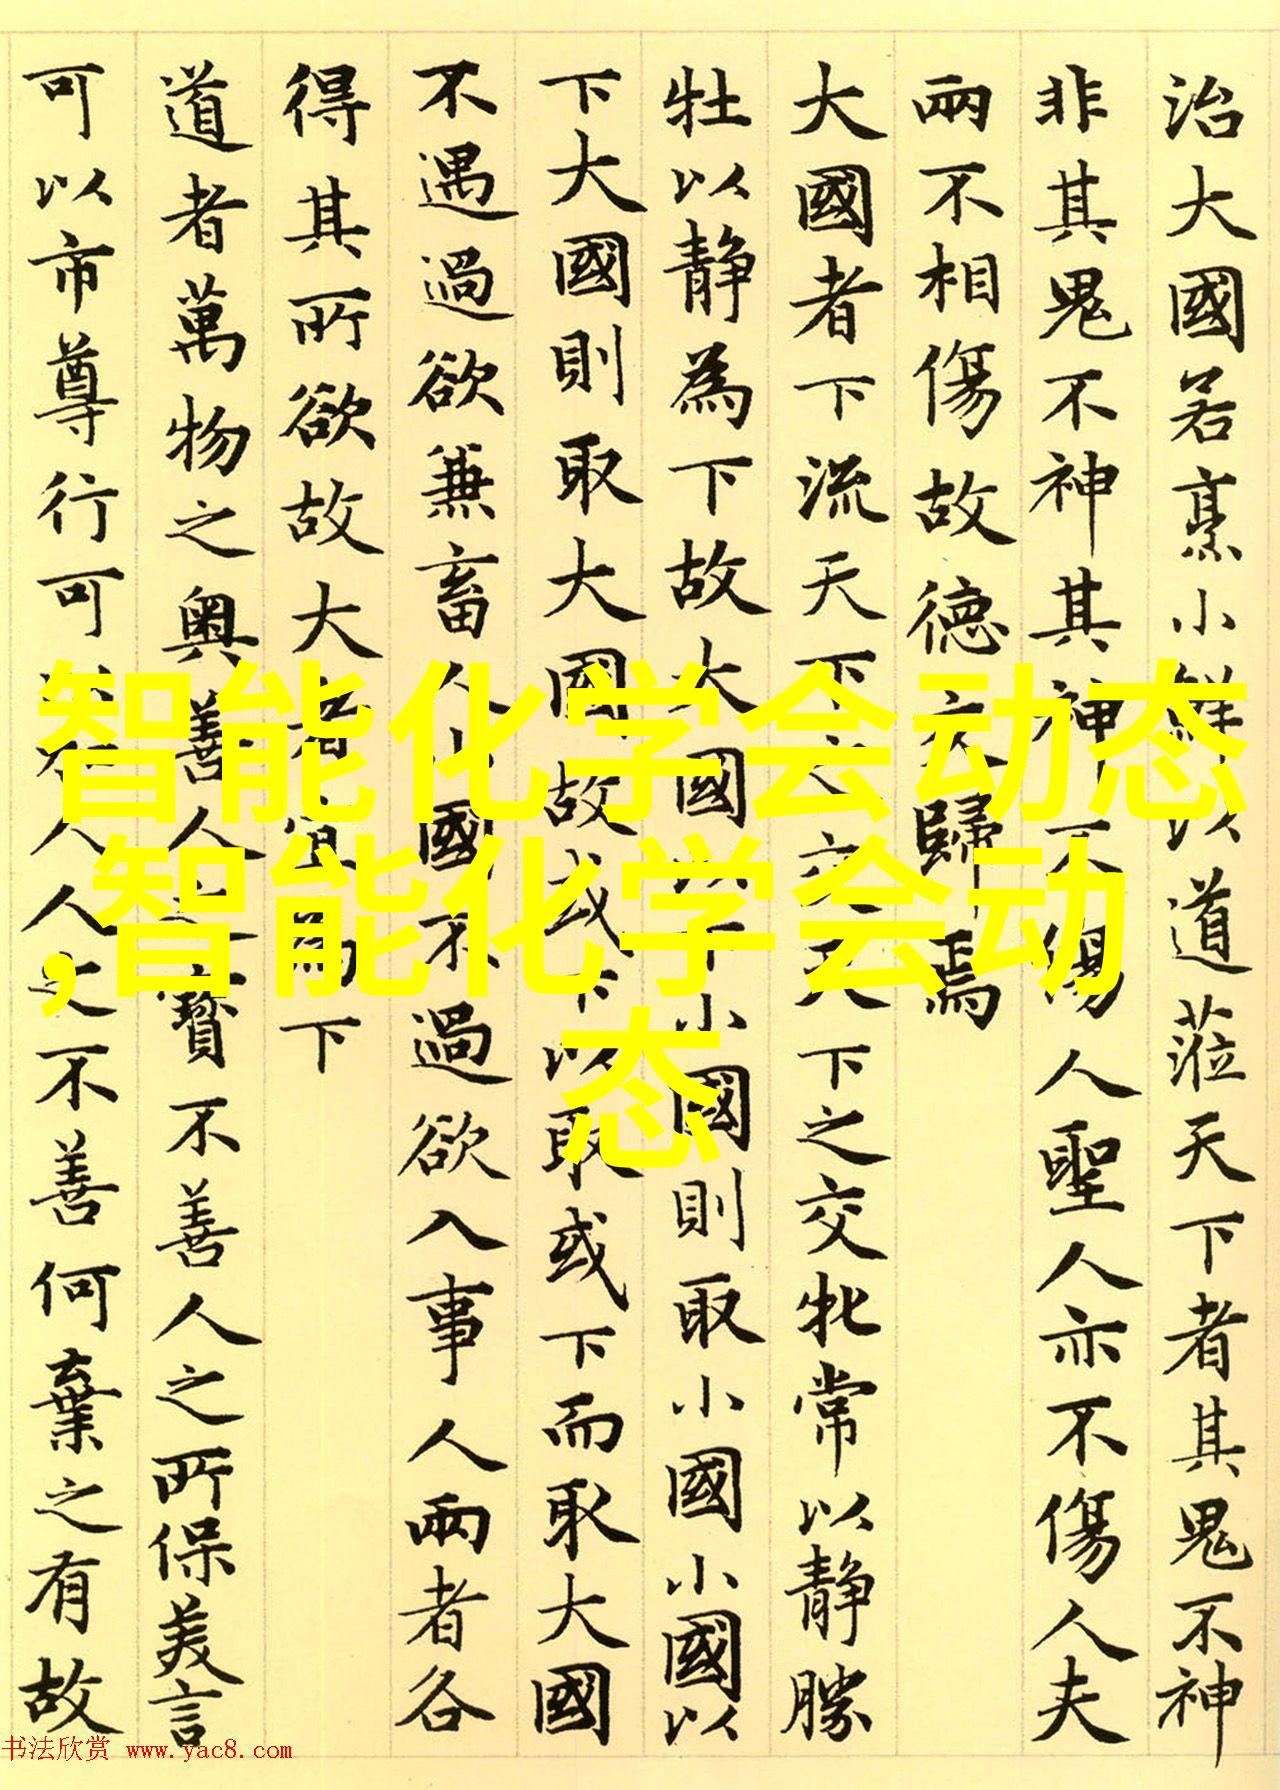 治大國若烹小鮮以道蒞天下者其鬼不神
非其鬼不神其神不傷人聖人亦不傷人夫
兩不相傷故德交歸焉
大國者下流天下之交天下之交牝常以静勝
牡以静為下故大國以下小國則取小國小國以
下大國則取大國故或下以取或下而取大國
不遇過欲兼畜人小國不過欲入事人兩者各
得其所欲故大者宜為下
道者萬物之奧善人之寶不善人之所保美言
可以市尊行可人人之不善何棄之有故
智能化学会动态
,智能化学会动
态
书法欣赏 www.yac8.com